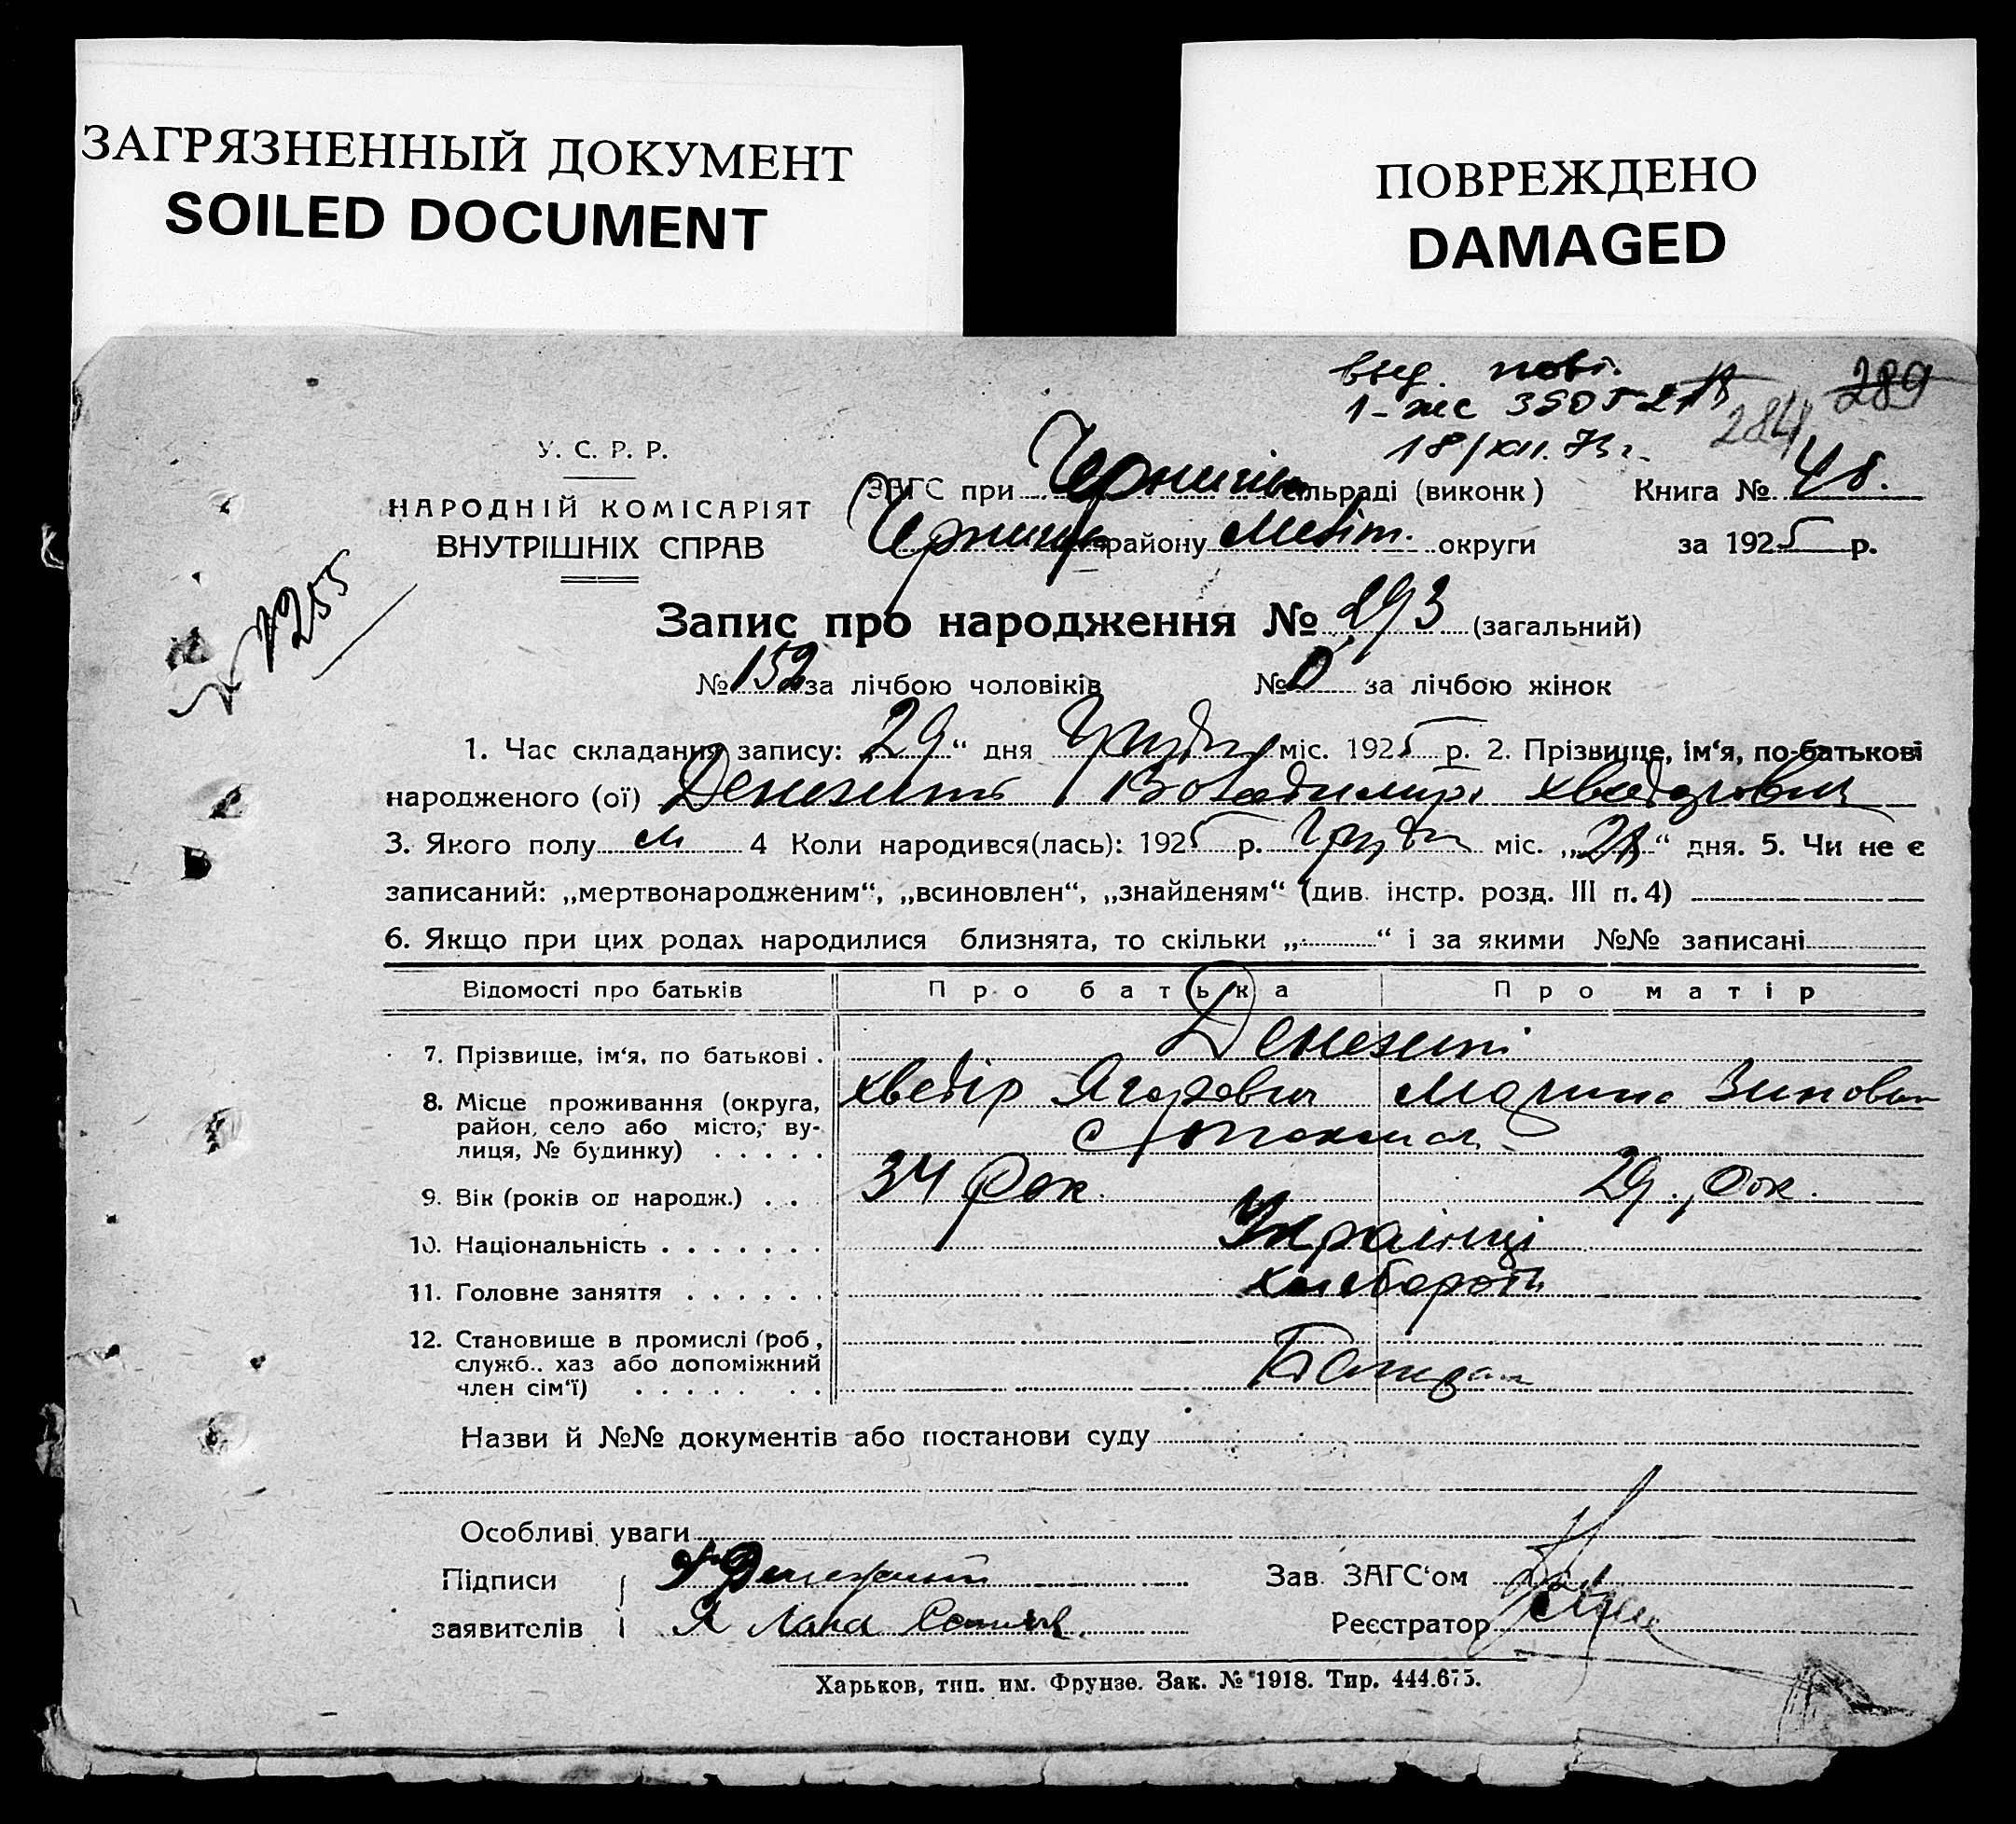 ЗАГРЯЗНЕННЫЙ ДОКУМЕНТ
SOILED DOCUMENT
ПОВРЕЖДЕНО
DAMAGED
выд. повт.
18/XII.73г.
289
284
У. С. Р. Р.
НАРОДНІЙ КОМІСАРІЯТ
ВНУТРІШНІХ СПРАВ
ЗАГС при сільраді (виконк) Книга № 48.
району Меліт. округи за 1925 р.
1255
Запис про народження № 293 (загальний)
№ 152 за лічбою чоловіків № 0 за лічбою жінок
1. Час складання запису: „29“ дня Грудня міс. 1925 р. 2. Прізвище, ім‘я, по-батькові
народженого (ої) Володимир Хведорович
3. Якого полу м 4 Коли народився(лась): 1925 р. Грудн міс. „ “ дня. 5. Чи не є
записаний: „мертвонародженим“, „всиновлен“, „знайденям“ (див. інстр. розд. III п. 4)
6. Якщо при цих родах народилися близнята, то скільки „ “ і за якими №№ записані
Відомості про батьків Про батька Про матір
7. Прізвище, ім‘я, по батькові .
Хведір Ягорович Марина Зинов
8. Місце проживання (округа,
район, село або місто, ву-
лиця, № будинку) . . . . .
9. Вік (років од народж.) . . 34 рок. 29 рок.
10. Національність . . . . . . . Українці
11. Головне заняття . . . . . . хлебороби
12. Становище в промислі (роб,
служб.. хаз або допоміжний
член сім‘ї) . . . . . . .
Назви й №№ документів або постанови суду
Особливі уваги
Підписи Зав. ЗАГС‘ом
заявителів Я Реєстратор
Харьков, тип. им. Фрунзе. Зак. № 1918. Тир. 444.675.